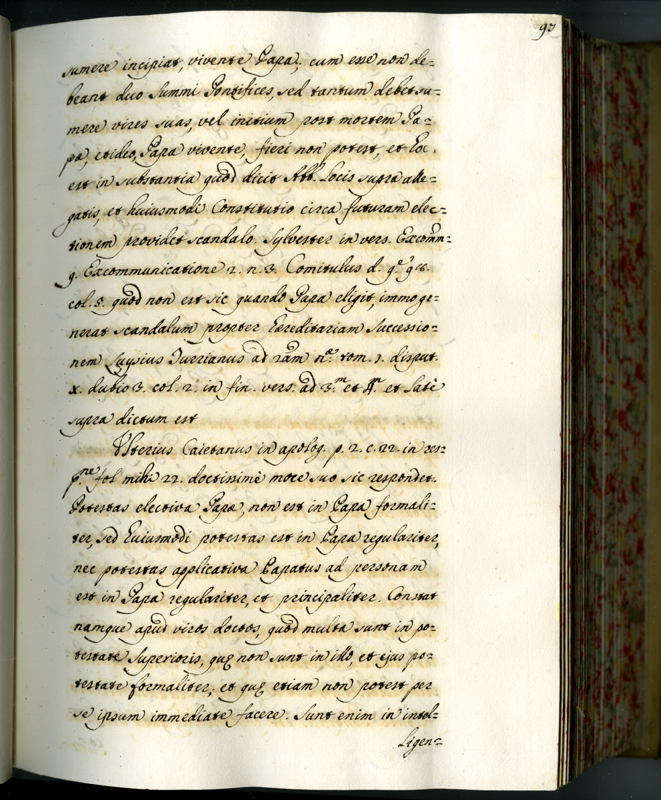 93
sumere incipiat, vivente Papa; cum esse non de=
beant duo Summi Pontifices, sed tantum debet su=
mere vires suas, vel initium post mortem Pa=
pæ, et ideo, Papa vivente, fieri non potest, et hoc
est in substantia quod dicit Abb. Locis supra alle=
gatis, et huiusmodi Constitutio circa futuram elec=
tionem providet scandalo. Sylvester in vers. Excom̃=
g. Excommunicatione 2. n. 3. Comitulus d.
col. 5. quod non est sic quando Papa eligit, immo ge=
nerat scandalum propter hereditariam Successio=
nem Luysius Turrianus ad tom. 1. disput.
x. dubio 3. col. 2. in fin. vers. ad 3.m et 4.m et Late
supra dictum est
Ulterius Caietanus in apolog. p. 2. c. 22. in res=
p.ne fol mihi 22. doctissime more suo sic respondet.
Potestas electiva Papæ, non est in Papa formali=
ter, sed huiusmodi potestas est in Papa regulariter,
nec potestas applicativa Papatus ad personam
est in Papa regulariter, et principaliter. Constat
namque apud viros doctos, quod multa sunt in po=
testate Superioris, quę non sunt in illo, et ejus po=
testate formaliter, et quę etiam non potest per
se ipsum immediate facere. Sunt enim in intel=
Ligen=